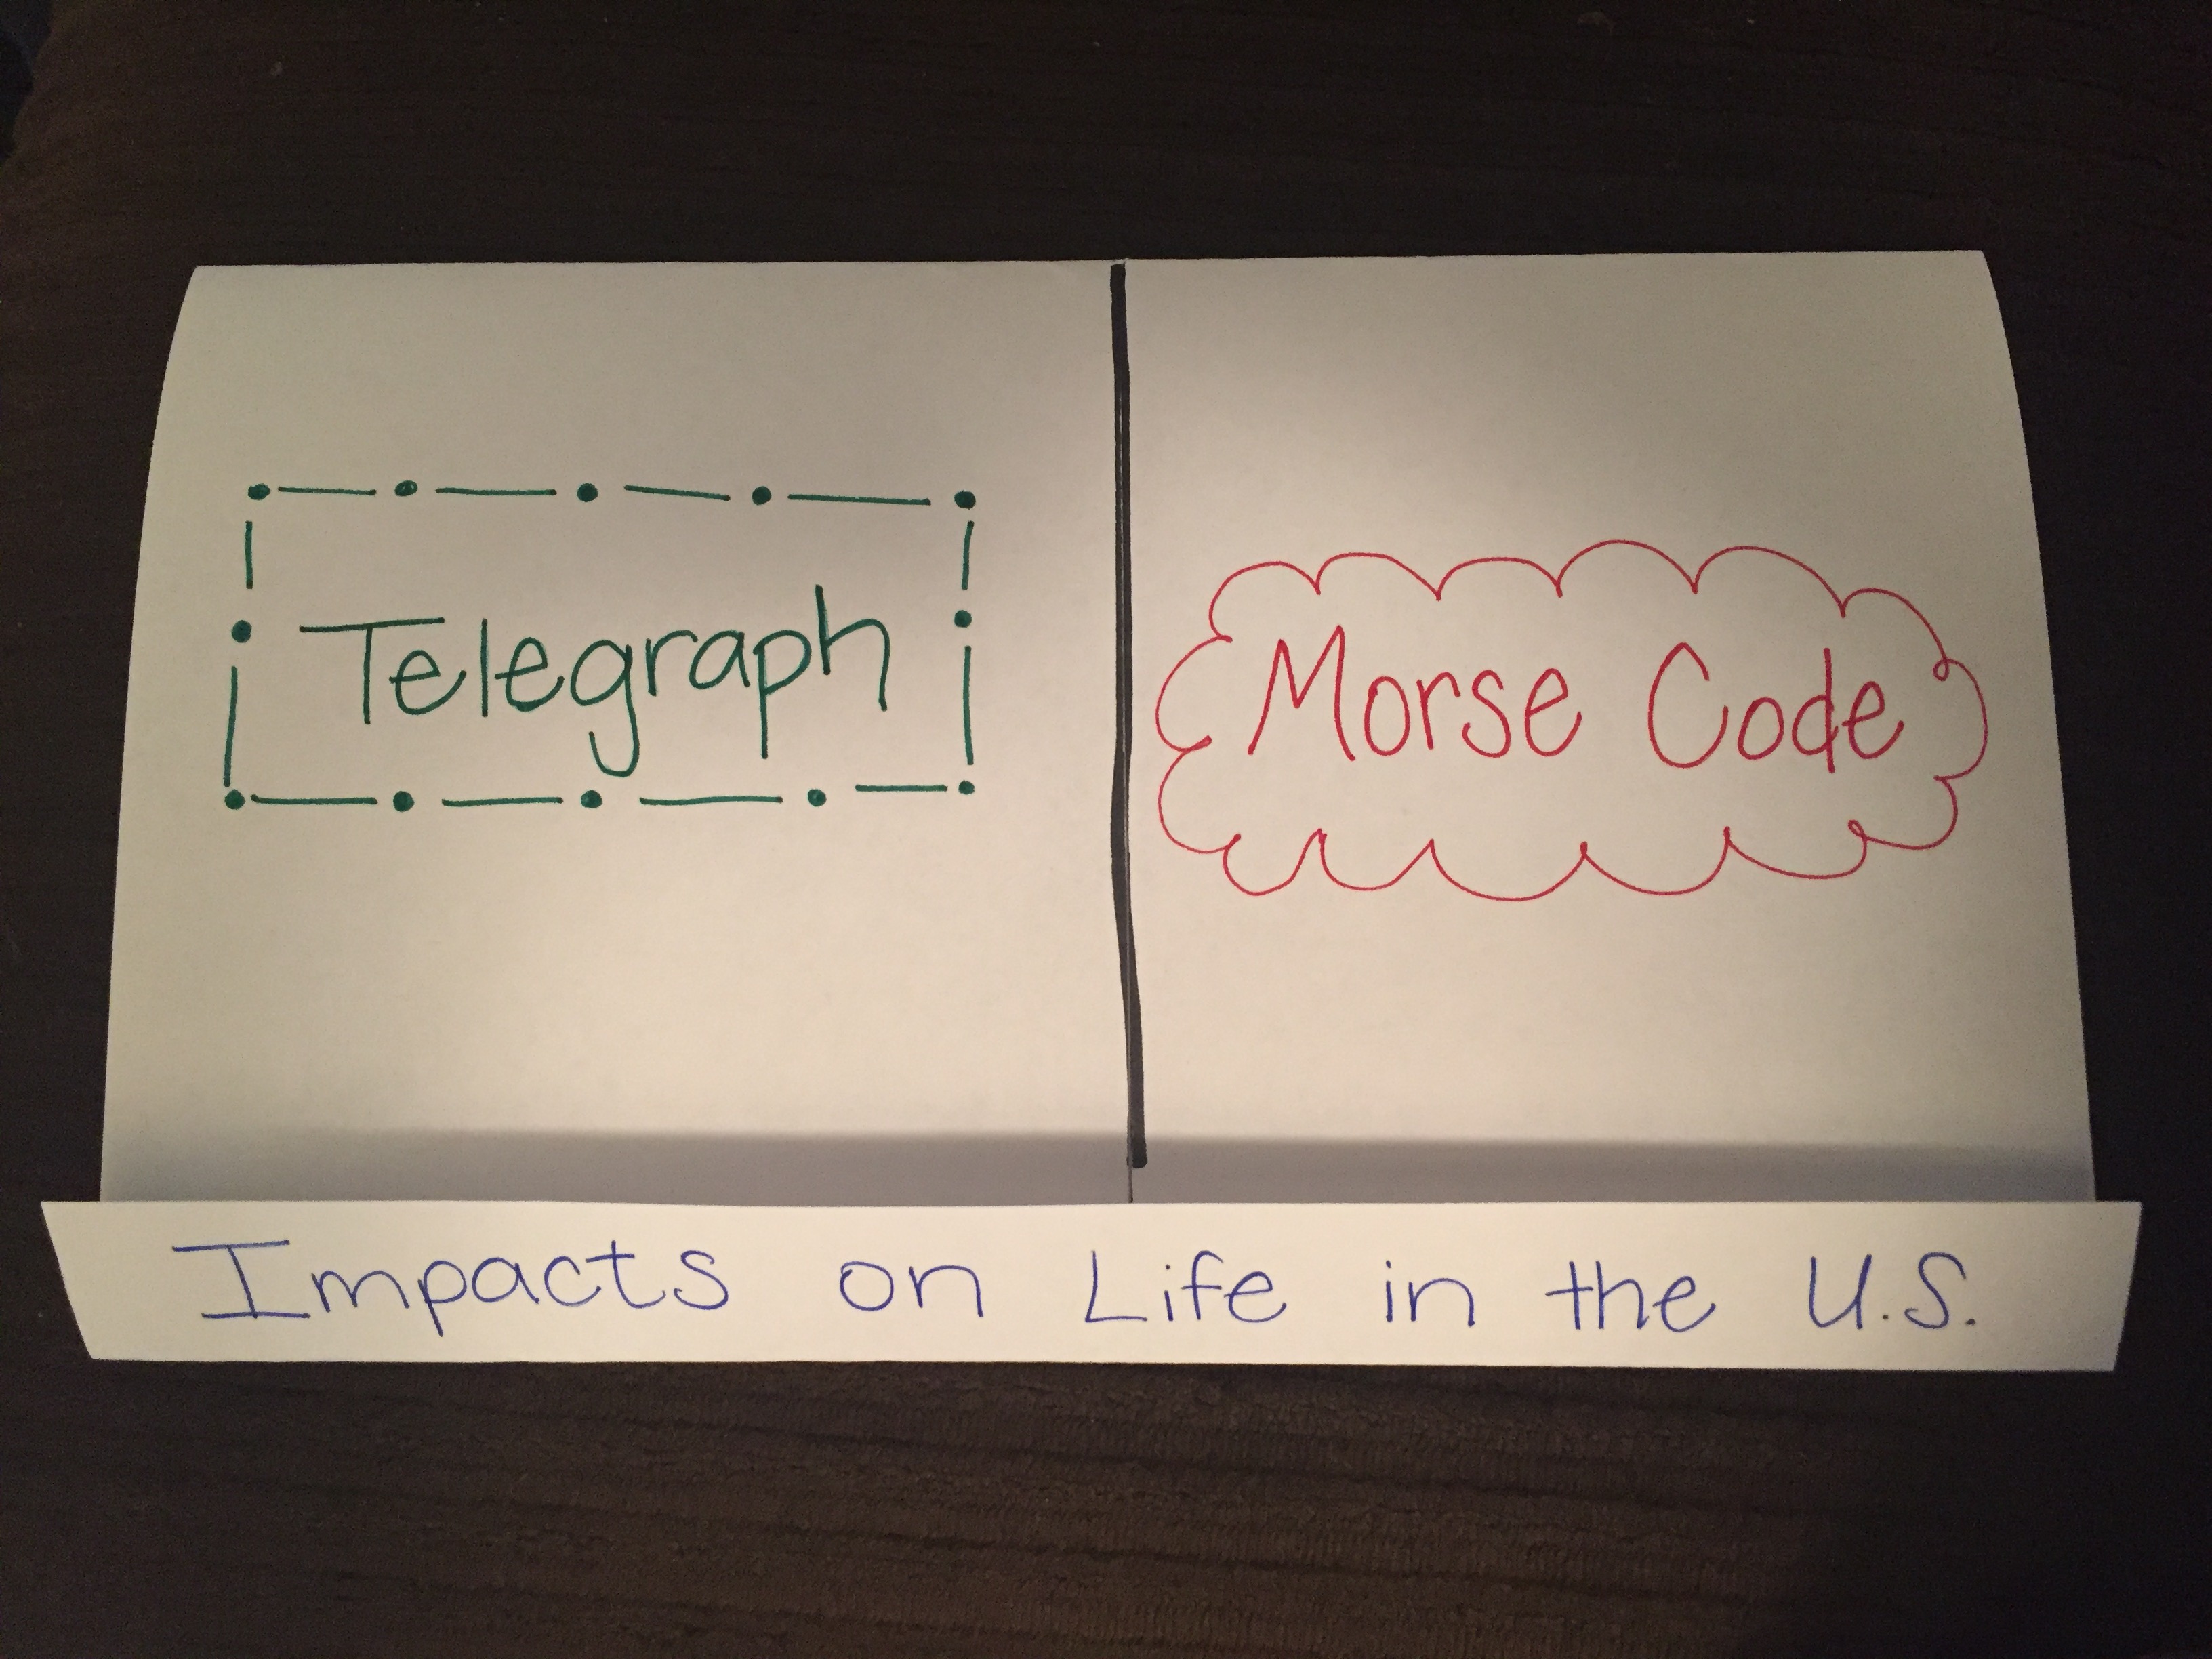 Telegraph
Morse Code
Impacts on Life in the U.S.